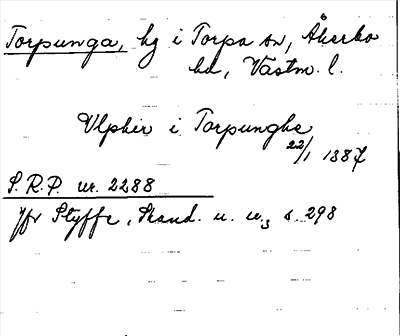 Torpunga, hg i Torpa sn, Åkerbo
hd, Västm. l.
Vlpher i Torpunghe
22/1 1387
S.R.P. nr. 2288
Jfr Styffe, Skand. u. u., s. 298